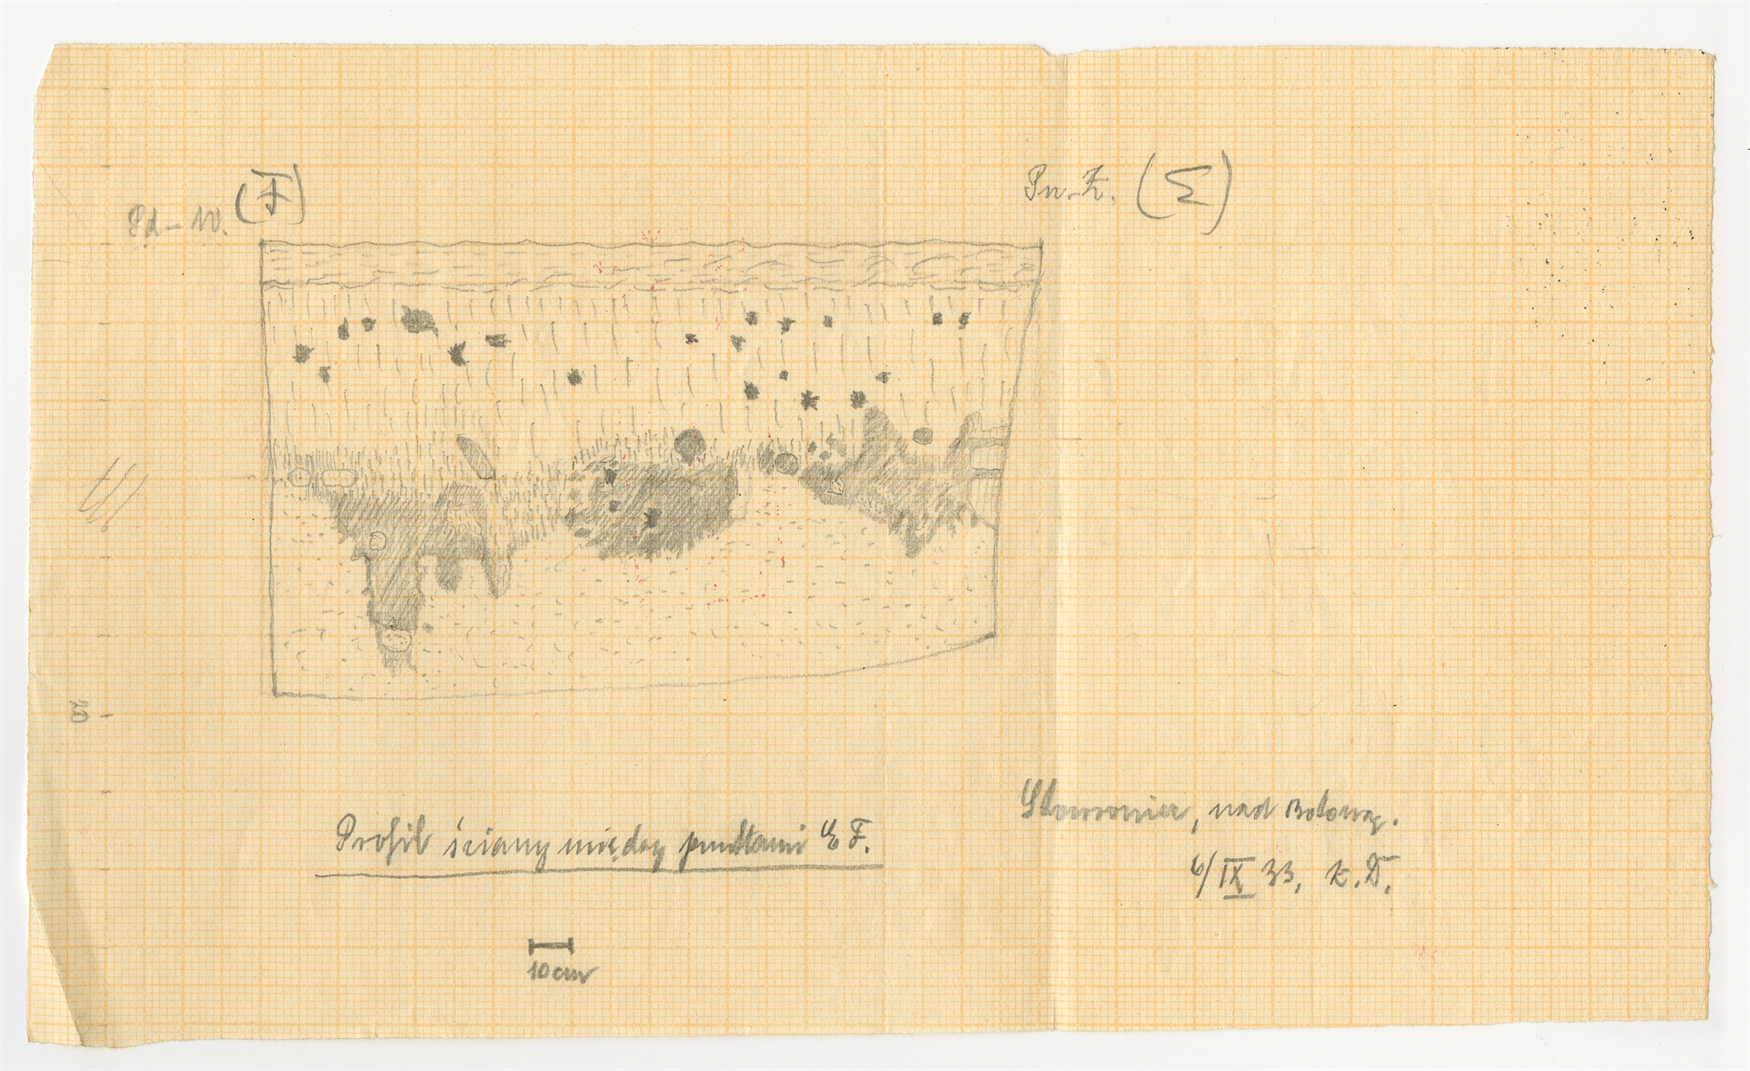 Pd-W. (F)
Pn-Z. (Σ)
Profil ściany między punktami E F.
10 cm
nad
6/IX 33, K.D.